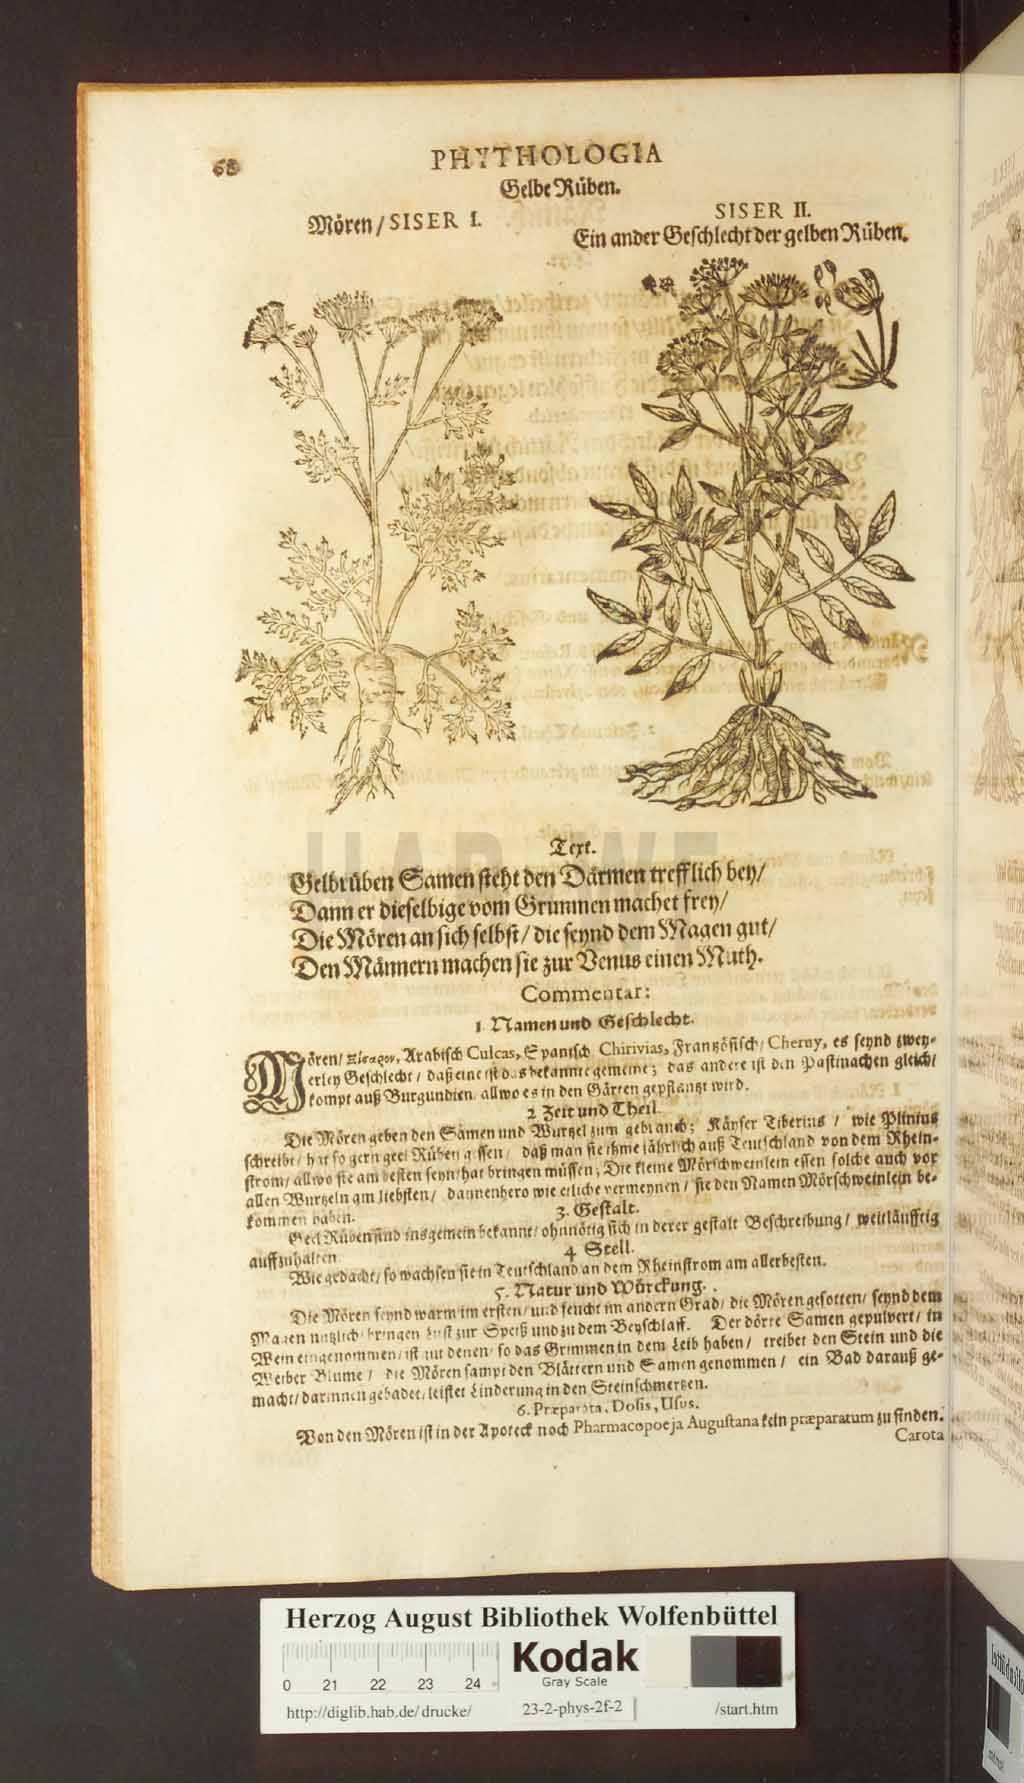 68
PHYTHOLOGIA
Gelbe Rüben.
Mören / SISER I.
SISER II.
Ein ander Geschlecht der gelben Rüben.
Text.
Gelbrüben Samen steht den Därmen trefflich bey /
Dann er dieselbige vom Grimmen machet frey /
Die Mören an sich selbst / die seynd dem Magen gut /
Den Männern machen sie zur Venus einen Muth.
Commentar:
1 Namen und Geschlecht.
Mören / Σίσαρον, Arabisch Culcas, Spanisch Chirivias, Frantzösisch / Cheruy, es seynd zwey-
erley Geschlecht / daß eine ist das bekannte gemeine; das andere ist den Pastinachen gleich /
kompt auß Burgundien, allwo es in den Gärten gepflantzt wird.
2 Zeit und Theil.
Die Mören geben den Samen und Wurtzel zum gebrauch; Käyser Tiberius / wie Plinius
schreibt / hat so gern geel Rüben gessen / daß man sie ihme jährlich auß Teutschland von dem Rhein-
strom / allwo sie am besten seyn / hat bringen müssen; Die kleine Mörschweinlein essen solche auch vor
allen Wurtzeln am liebsten / dannenhero wie etliche vermeynen / sie den Namen Mörschweinlein be-
kommen haben.
3. Gestalt.
Geel Rüben sind insgemein bekannt / ohnnötig sich in derer gestalt Beschreibung / weitläufftig
auffzuhalten
4 Stell.
Wie gedacht / so wachsen sie in Teutschland an dem Rheinstrom am allerbesten.
5. Natur und Würckung.
Die Mören seynd warm im ersten / und feucht im andern Grad / die Mören gesotten / seynd dem
Magen nützlich / bringen Lust zur Speiß und zu dem Beyschlaff. Der dörre Samen gepulvert / in
Wein eingenommen / ist gut denen / so das Grimmen in dem Leib haben / treibet den Stein und die
Weiber Blume / die Mören sampt den Blättern und Samen genommen / ein Bad darauß ge-
macht / darinnen gebadet / leistet Linderung in den Steinschmertzen.
6. Præparata, Dosis, Usus.
Von den Mören ist in der Apoteck noch Pharmacopoeja Augustana kein præparatum zu finden.
Carota
Herzog August Bibliothek Wolfenbüttel
0 21 22 23 24
Kodak
Gray Scale
http://diglib.hab.de/drucke/ 23-2-phys-2f-2 /start.htm